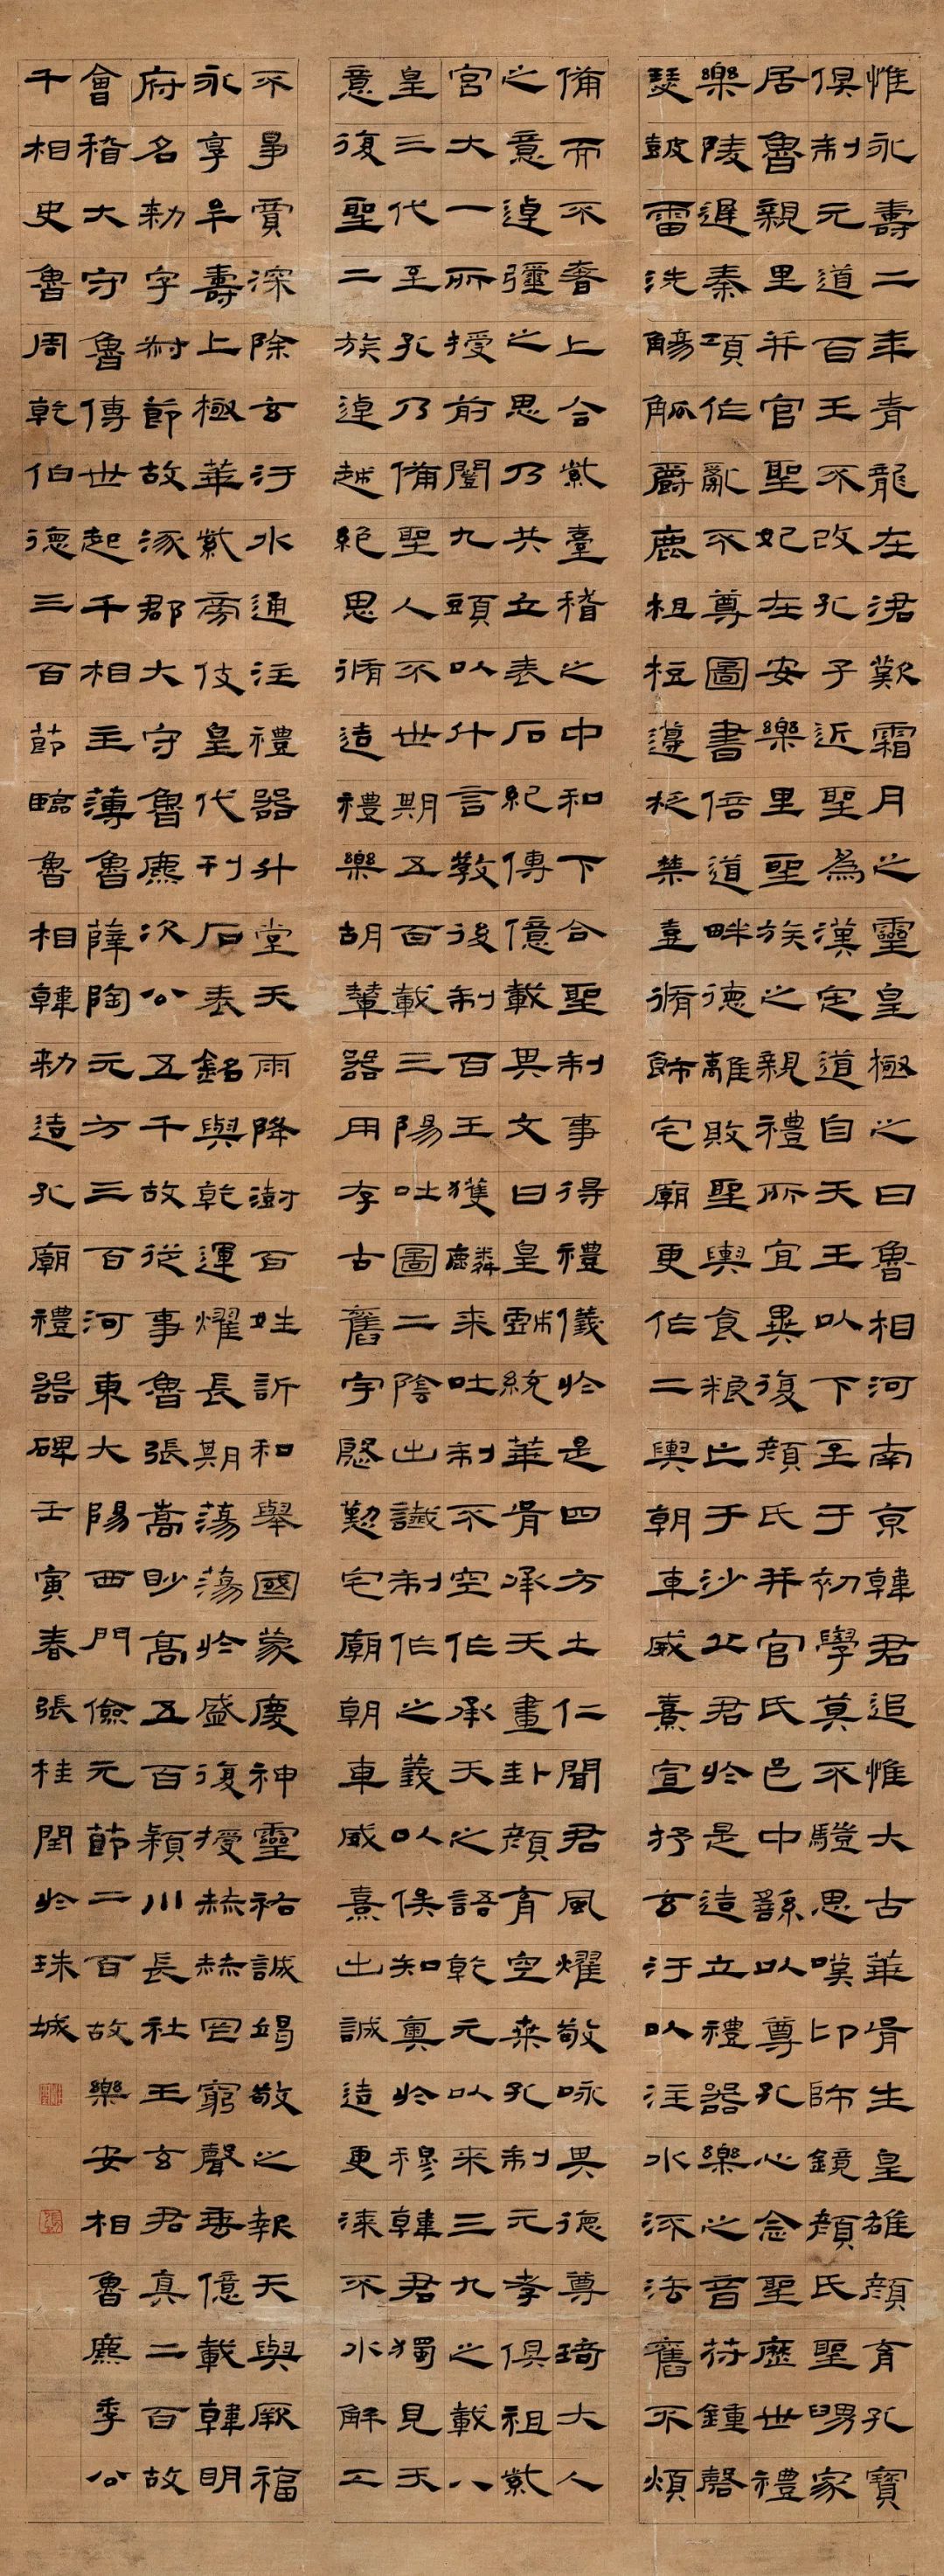 惟永壽二年青龍在涒歎霜月之靈皇極之日魯相河南京韓君追惟大古華胥生皇雄顏育孔寶
俱制元道百王不改孔子近聖為漢定道自天王以下至于初學莫不驥思嘆卬師鏡顏氏聖舅家
居魯親里并官聖妃在安樂里聖族之親禮所宜異復顏氏并官氏邑中繇以尊孔心念聖歷世禮
樂陵遲秦項作亂不尊圖書倍道畔德離敗聖輿食粮亡于沙丘君於是造立禮器樂之音符鍾磬
瑟鼓雷洗觴觚爵鹿柤梪籩柉禁壺脩飾宅廟更作二輿朝車威熹宣抒玄汙以注水流法舊不煩
備而不奢上合紫臺稽之中和下合聖制事得禮儀於是四方土仁聞君風燿敬咏其德尊琦大人
之意逴彌之思乃共立表石紀傳億載其文曰皇戲統華胥承天畫卦顏育空桑孔制元孝俱祖紫
宮大一所授前闓九頭以什言教後制百王獲麟來吐制不空作承天之語乾元以來三九之載八
皇三代至孔乃備聖人不世期五百載三陽吐圖二陰出讖制作之義以俟知奧於穆韓君獨見天
意復聖二族逴越絕思脩造禮樂胡輦器用存古舊宇慇懃宅廟朝車威熹出誠造更漆不水解工
不爭賈深除玄汙水通注禮器升堂天雨降澍百姓訢和舉國蒙慶神靈祐誠竭敬之報天與厥福
永享牟壽上極華紫旁伎皇代刊石表銘與乾運燿長期蕩蕩於盛復授赫赫罔窮聲垂億載韓明
府名勑字叔節故涿郡大守魯麃次公五千故從事魯張嵩眇高五百潁川長社王玄君真二百故
會稽大守魯傳世起千相主薄魯薛陶元方三百河東大陽西門儉元節二百故樂安相魯麃季公
千相史魯周乾伯德三百節臨魯相韓勑造孔廟禮器碑壬寅春張桂閏於珠城